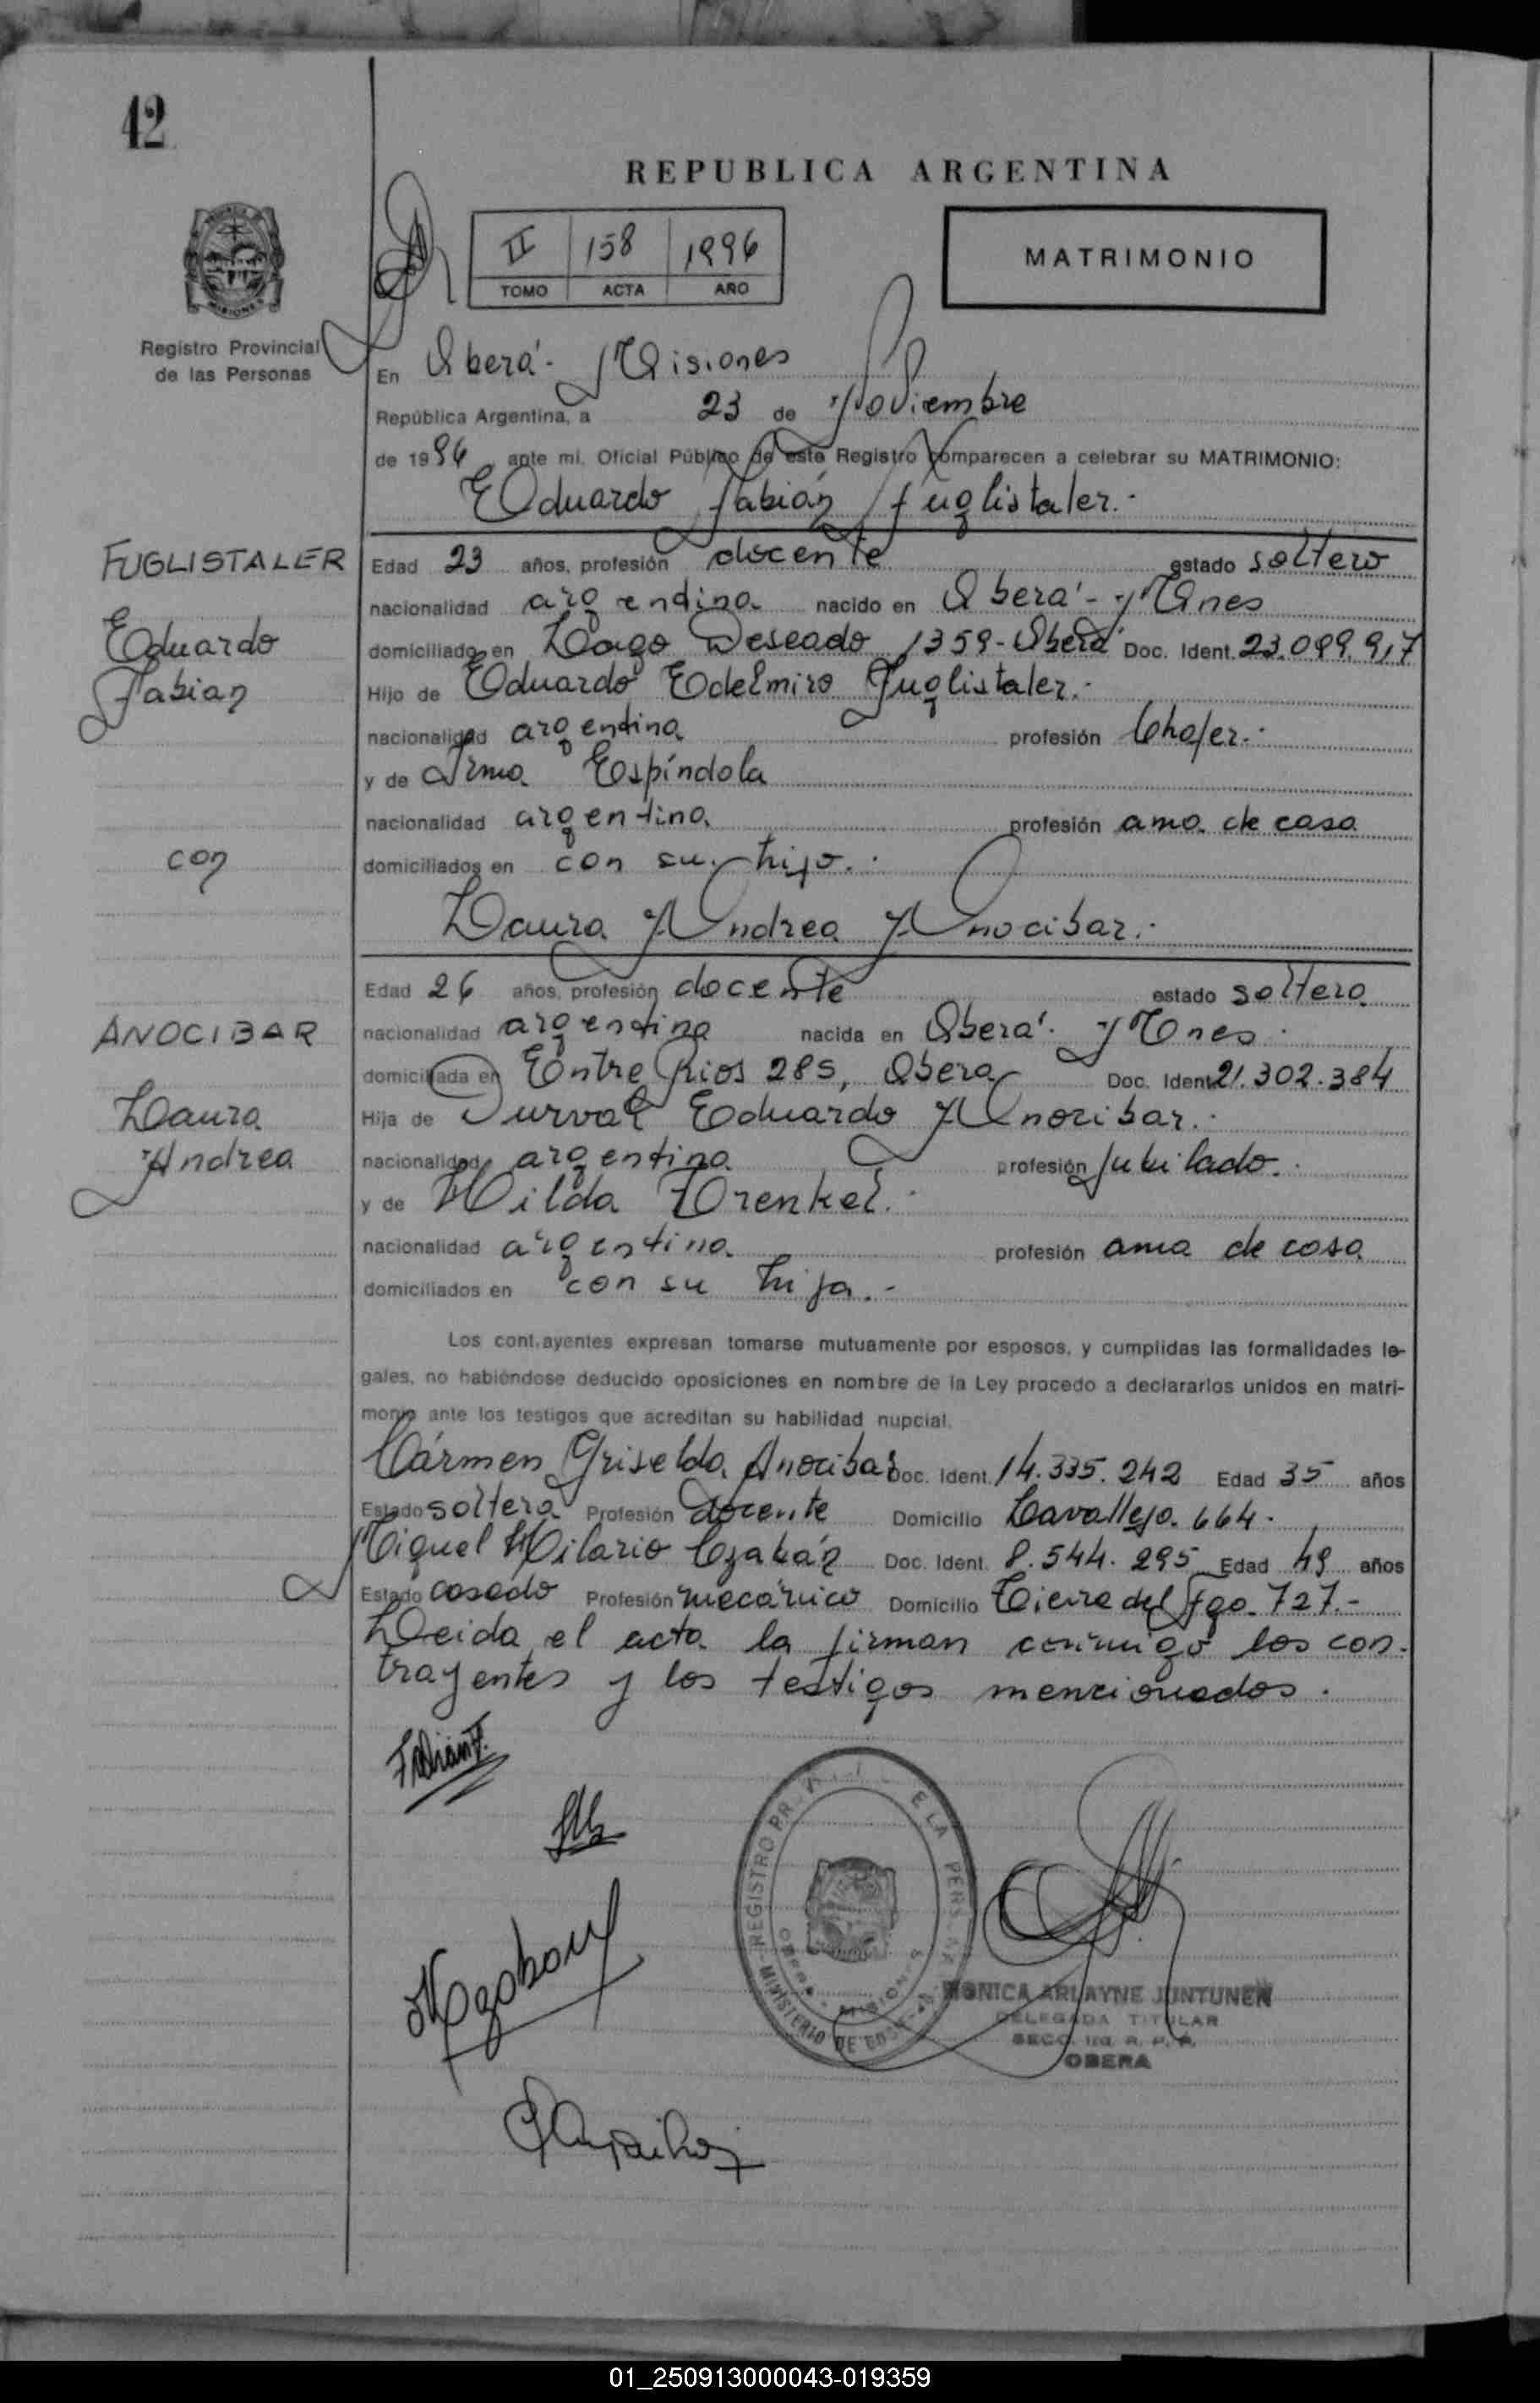 42
REPUBLICA ARGENTINA
II 158 1996
TOMO ACTA AÑO
MATRIMONIO
Registro Provincial
de las Personas
En Oberá - Misiones
República Argentina, a 23 de Noviembre
de 1996, ante mí, Oficial Público de este Registro comparecen a celebrar su MATRIMONIO:
Eduardo Fabián Fuglistaler.-
FUGLISTALER
Eduardo
Fabian
con
ANOCIBAR
Laura
Andrea
Edad 23 años, profesión docente estado soltero
nacionalidad argentina nacido en Oberá - Mnes
domiciliado en Lago Deseado 1359 - Oberá Doc. Ident. 23.099.917
Hijo de Eduardo Edelmiro Fuglistaler.-
nacionalidad argentina profesión Chofer.-
y de Irma Espíndola
nacionalidad argentina profesión ama de casa
domiciliados en con su hijo.-
Laura Andrea Anocibar.-
Edad 26 años, profesión docente estado soltera
nacionalidad argentina nacida en Oberá. Mnes.
domiciliada en Entre Rios 285, Obera Doc. Ident. 21.302.384
Hija de Durval Eduardo Anocibar.-
nacionalidad argentina profesión Jubilado.-
y de Hilda Frenkel.-
nacionalidad argentina profesión ama de casa
domiciliados en con su hija.-
Los contrayentes expresan tomarse mutuamente por esposos, y cumplidas las formalidades le-
gales, no habiéndose deducido oposiciones en nombre de la Ley procedo a declararlos unidos en matri-
monio ante los testigos que acreditan su habilidad nupcial.
Cármen Griselda Anocibar Doc. Ident. 14.335.242 Edad 35 años
Estado soltera Profesión docente Domicilio Lavalleja 664.
Miguel Hilario Czakán Doc. Ident. 8.544.295 Edad 49 años
Estado casado Profesión mecánico Domicilio Tierra del fgo. 727.-
Leida el acta la firman conmigo los con-
trayentes y los testigos mencionados.
Fabian F.
REGISTRO DE LA
MINISTERIO DE
MONICA ARLAYNE JUNTUNEN
DELEGADA TITULAR
OBERA
01_250913000043-019359